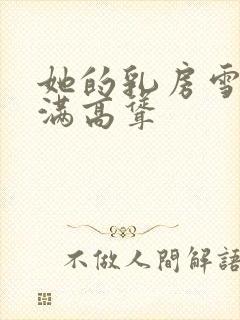 她的乳房雪
满高耸
不做人間解語